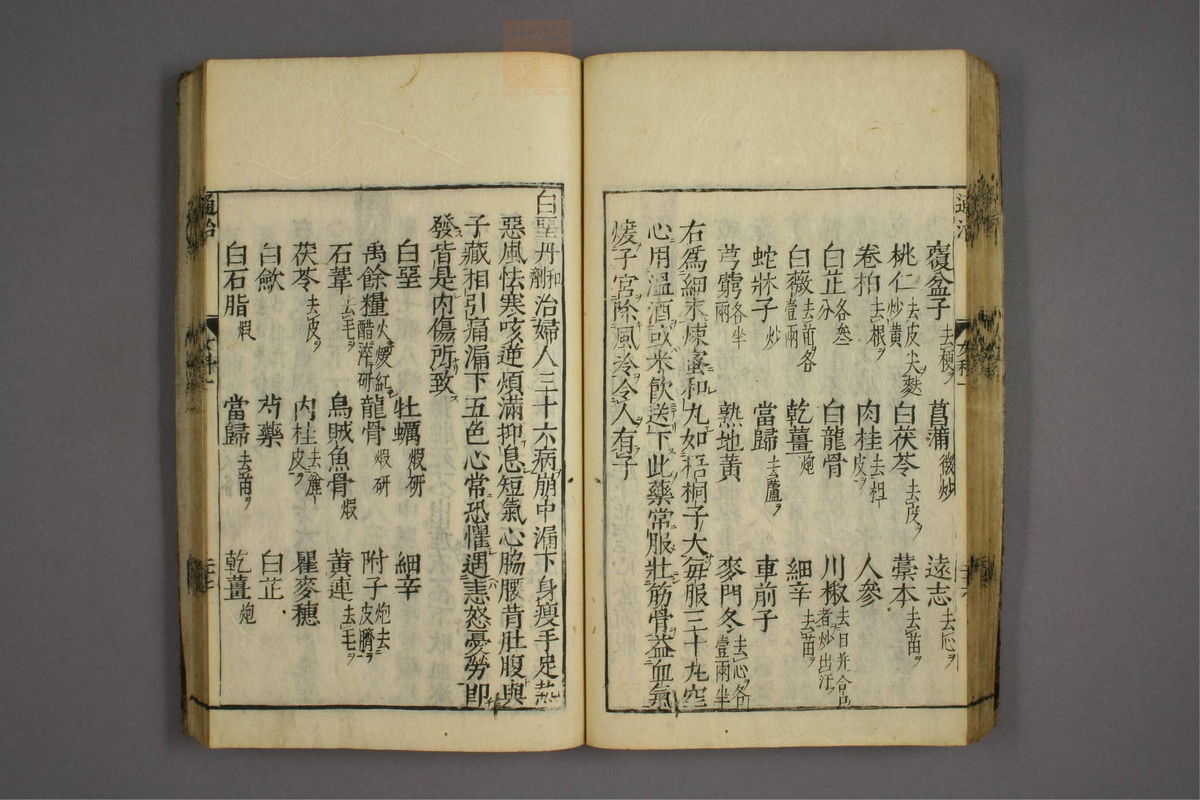 覆盆子去梗ヲ 菖蒲微炒 遠志去心ヲ
桃仁去皮尖麩炒黄 白茯苓去皮ヲ 藁本去苗ヲ
卷栢去根ヲ 肉桂去粗皮ヲ 人參
白芷各叁分 白龍骨 川椒去目并合口者炒出汗
白薇去苗各壹兩 乾薑炮 細辛去苗ヲ
蛇牀子炒 當歸去蘆ヲ 車前子
芎藭各半兩 熟地黄 麥門冬去心各壹兩半
右爲細末煉蜜和九如梧桐子大毎服三十九空
心用溫酒或米飲送下此藥常服壯筋骨益血氣
煖子宮除風冷令人有子
白堊丹和劑治婦人三十六病崩中漏下身瘦手足熱
惡風怯寒咳逆煩滿抑息短氣心脇腰背肚腹與
子藏相引痛漏下五色心常恐懼遇恚怒憂勞即
發皆是内傷所致
白堊 牡蠣煆研 細辛
禹餘糧火煆紅醋淬研 龍骨煆研 附子炮去皮臍ヲ
石葦去毛ヲ 烏賊魚骨煆 黃連去毛ヲ
茯苓去皮ヲ 肉桂去麄皮ヲ 瞿麥穗
白歛 芍藥 白芷
白石脂煆 當歸去苗ヲ 乾薑炮
通治